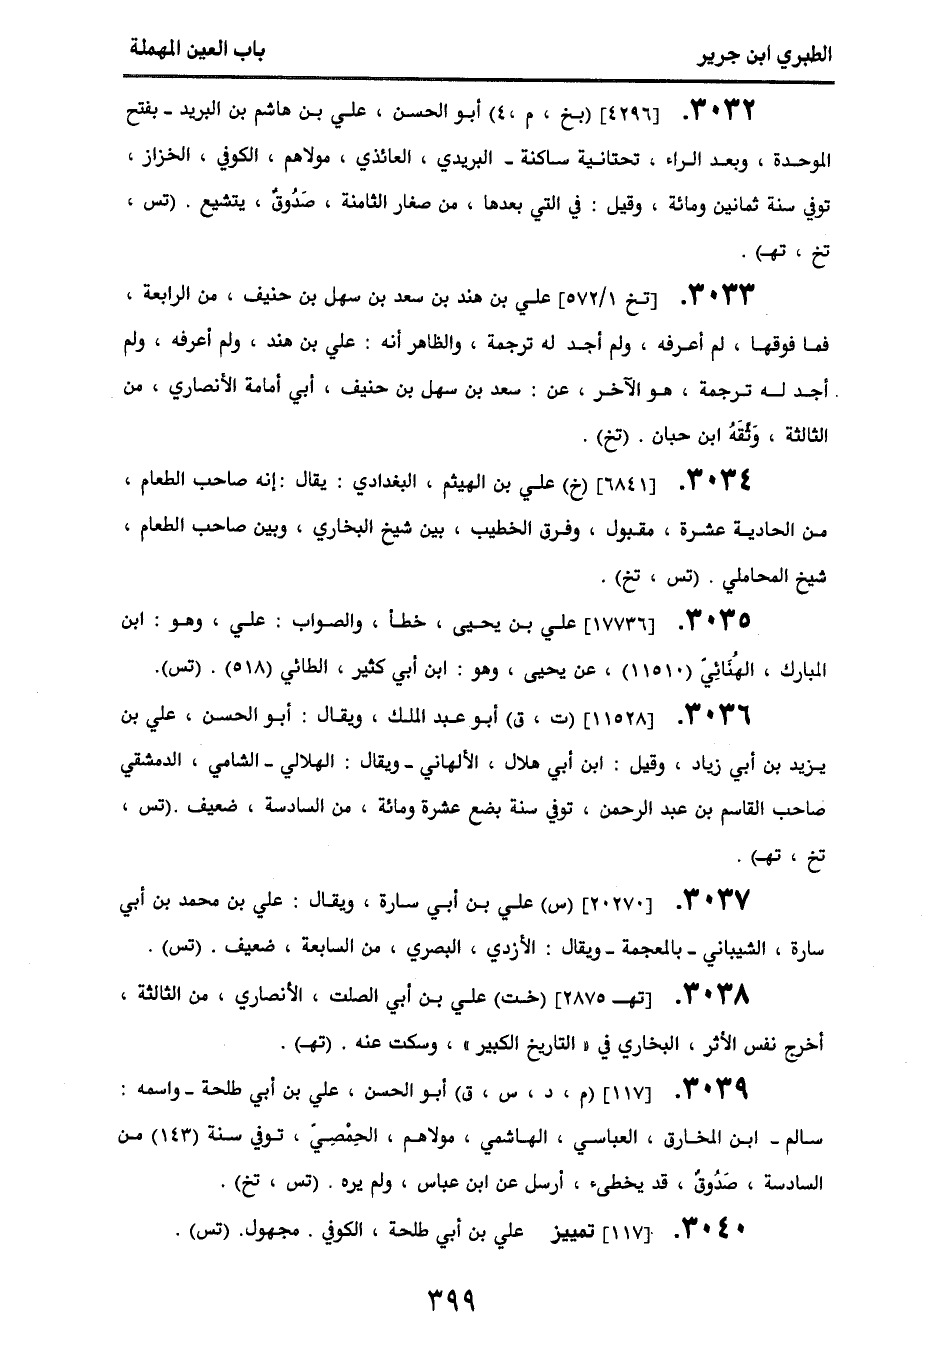 الطبري ابن جرير
باب العين المهملة
٣٠٣٢. [٤٢٩٦] (بخ ، م ،٤) أبو الحسن ، علي بن هاشم بن البريد ـ بفتح
الموحدة ، وبعد الراء ، تحتانية ساكنة ـ البريدي ، العائذي ، مولاهم ، الكوفي ، الخزاز ،
توفي سنة ثمانين ومائة ، وقيل : في التي بعدها ، من صغار الثامنة ، صَدُوقٌ ، يتشيع . (تس ،
تخ ، تهـ) .
٣٠٣٣. [تخ ٥٧٢/١] علي بن هند بن سعد بن سهل بن حنيف ، من الرابعة ،
فما فوقها ، لم أعرفه ، ولم أجد له ترجمة ، والظاهر أنه : علي بن هند ، ولم أعرفه ، ولم
أجد له ترجمة ، هو الآخر ، عن : سعد بن سهل بن حنيف ، أبي أمامة الأنصاري ، من
الثالثة ، وَثَّقَهُ ابن حبان . (تخ) .
٣٠٣٤. [٦٨٤١] (خ) علي بن الهيثم ، البغدادي : يقال :إنه صاحب الطعام ،
من الحادية عشرة ، مقبول ، وفرق الخطيب ، بين شيخ البخاري ، وبين صاحب الطعام ،
شيخ المحاملي . (تس ، تخ) .
٣٠٣٥. [١٧٧٣٦] علي بن يحيى ، خطأ ، والصواب : علي ، وهو : ابن
المبارك ، الهُنَائِيّ (١١٥١٠) ، عن يحيى ، وهو : ابن أبي كثير ، الطائي (٥١٨) . (تس).
٣٠٣٦. [١١٥٢٨] (ت ، ق) أبو عبد الملك ، ويقال : أبو الحسن ، علي بن
يزيد بن أبي زياد ، وقيل : ابن أبي هلال ، الألهاني ـ ويقال : الهلالي ـ الشامي ، الدمشقي
صاحب القاسم بن عبد الرحمن ، توفي سنة بضع عشرة ومائة ، من السادسة ، ضعيف .(تس ،
تخ ، تهـ) .
٣٠٣٧. [٢٠٢٧٠] (س) علي بن أبي سارة ، ويقال : علي بن محمد بن أبي
سارة ، الشيباني ـ بالمعجمة ـ ويقال : الأزدي ، البصري ، من السابعة ، ضعيف . (تس) .
٣٠٣٨. [تهـ ٢٨٧٥] (خت) علي بن أبي الصلت ، الأنصاري ، من الثالثة ،
أخرج نفس الأثر ، البخاري في « التاريخ الكبير » ، وسكت عنه . (تهـ) .
٣٠٣٩. [١١٧] (م ، د ، س ، ق) أبو الحسن ، علي بن أبي طلحة ـ واسمه :
سالم ـ ابن المخارق ، العباسي ، الهاشمي ، مولاهم ، الحِمْصِيّ ، توفي سنة (١٤٣) من
السادسة ، صَدُوقٌ ، قد يخطىء ، أرسل عن ابن عباس ، ولم يره . (تس ، تخ) .
٣٠٤٠. [١١٧] تمييز علي بن أبي طلحة ، الكوفي . مجهول. (تس) .
٣٩٩